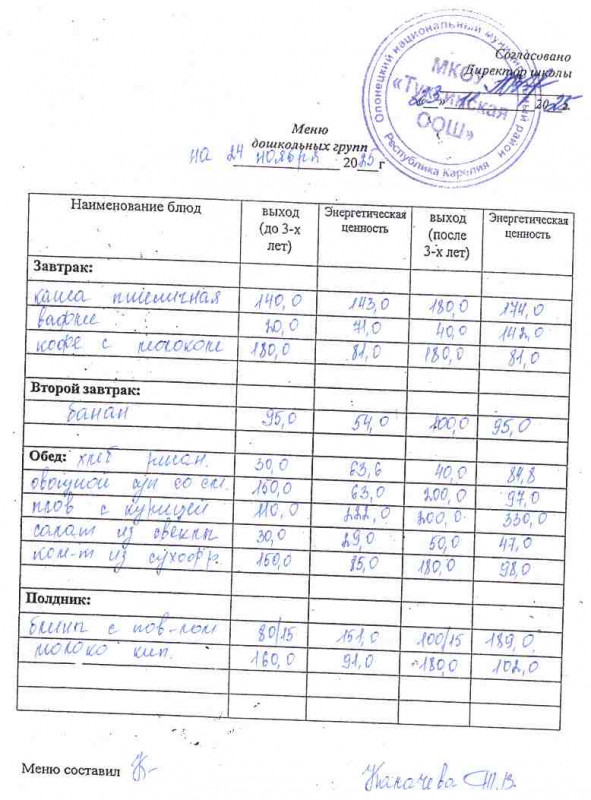 Согласовано
Директор школы
«23» 11 2025.
Олонецкий национальный муниципальный район
Республика Карелия
МКОУ
«Туксинская
ООШ»
Меню
дошкольных групп
на 24 ноября 2025 г
Наименование блюд выход (до 3-х лет) Энергетическая ценность выход (после 3-х лет) Энергетическая ценность
Завтрак:
каша пшеничная 140,0 143,0 180,0 174,0
вафли 20,0 71,0 40,0 142,0
кофе с молоком 180,0 81,0 180,0 81,0
Второй завтрак:
банан 95,0 54,0 100,0 95,0
Обед: хлеб ржан. 30,0 63,6 40,0 84,8
овощной суп со см. 150,0 63,0 200,0 97,0
плов с курицей 110,0 222,0 200,0 330,0
салат из свеклы 30,0 29,0 50,0 47,0
ком-т из сухофр. 150,0 85,0 180,0 98,0
Полдник:
блины с пов-лом 80/15 151,0 100/15 189,0
молоко кип. 160,0 91,0 180,0 102,0
Меню составил